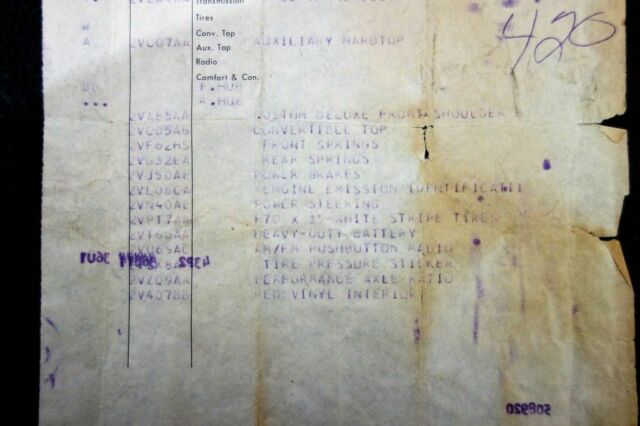 Transmission
Tires
W Conv. Top
A 2VC07AA Aux. Top AUXILIARY HARDTOP
Radio
Comfort & Con.
F.HUB
••• R.HUB
2VA85AA CUSTOM DELUXE FRONT SHOULDER
2VC05AB CONVERTIBLE TOP
2VF62HS FRONT SPRINGS
2VG32EA REAR SPRINGS
2VJ50AE POWER BRAKES
2VL08CA ENGINE EMISSION IDENTIFICATI
2VN40AE POWER STEERING
2VPT7AA F70 X 15 WHITE STRIPE TIRES
2VT60AA HEAVY-DUTY BATTERY
2VU69AC AM/FM PUSHBUTTON RADIO
36U1 43P2 TIRE PRESSURE STICKER
2VZ09AA PERFORMANCE AXLE RATIO
2V407BB RED VINYL INTERIOR
420
508920